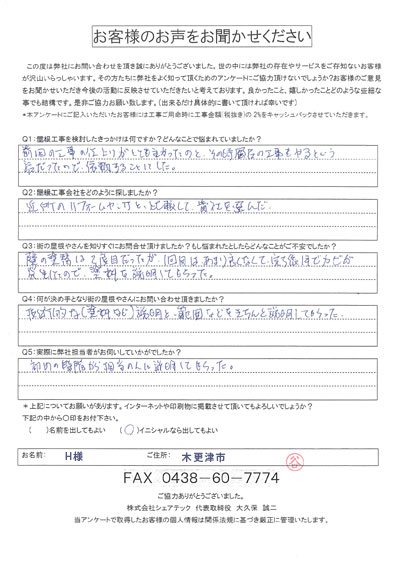 お客様のお声をお聞かせください
この度は弊社にお問い合わせを頂き誠にありがとうございました。世の中には弊社の存在やサービスをご存知ないお客様
が沢山いらっしゃいます。その方たちに弊社をよく知って頂くためのアンケートにご協力頂けないでしょうか?お客様のご意見
をお聞かせいただき今後の活動に反映させていきたいと考えております。良かったこと、嬉しかったことどのような些細な
事でも結構です。是非ご協力お願い致します。(出来るだけ具体的に書いて頂ければ幸いです)
*本アンケートにご記入いただいたお客様には工事ご用命時に工事金額(税抜き)の2%をキャッシュバックさせていただきます。
Q1:屋根工事を検討したきっかけは何ですか?どんなことで悩まれていましたか?
前回の工事の仕上りがとてもよかったのと、その他
工事もやるという
話だったので、依頼することにした。
Q2:屋根工事会社をどのように探しましたか?
近所のリフォーム
と比較して、貴社を選んだ。
Q3:街の屋根やさんを知りすぐにお問合せ頂けましたか?もし悩まれたとしたらどんなことがご不安でしたか?
壁の塗替は2度目だったが、1回目はあまり
発生したので、塗料を説明してもらった。
Q4:何が決め手となり街の屋根やさんにお問い合わせ頂きましたか?
具体的な(塗料など)説明と、範囲などをきちんと説明してもらった。
Q5:実際に弊社担当者がお伺いしていかがでしたか?
初めの段階から担当の人に説明してもらった。
*上記についてお願いがあります。インターネットや印刷物に掲載させて頂いてもよろしいでしょうか?
下記の中から○印をお付下さい。
( )名前を出してもよい (○)イニシャルなら出してもよい
お名前: H様 ご住所: 木更津市 谷
FAX 0438-60-7774
ご協力ありがとうございました。
株式会社シェアテック 代表取締役 大久保 誠二
当アンケートで取得したお客様の個人情報は関係法規に基づき厳正に管理いたします。